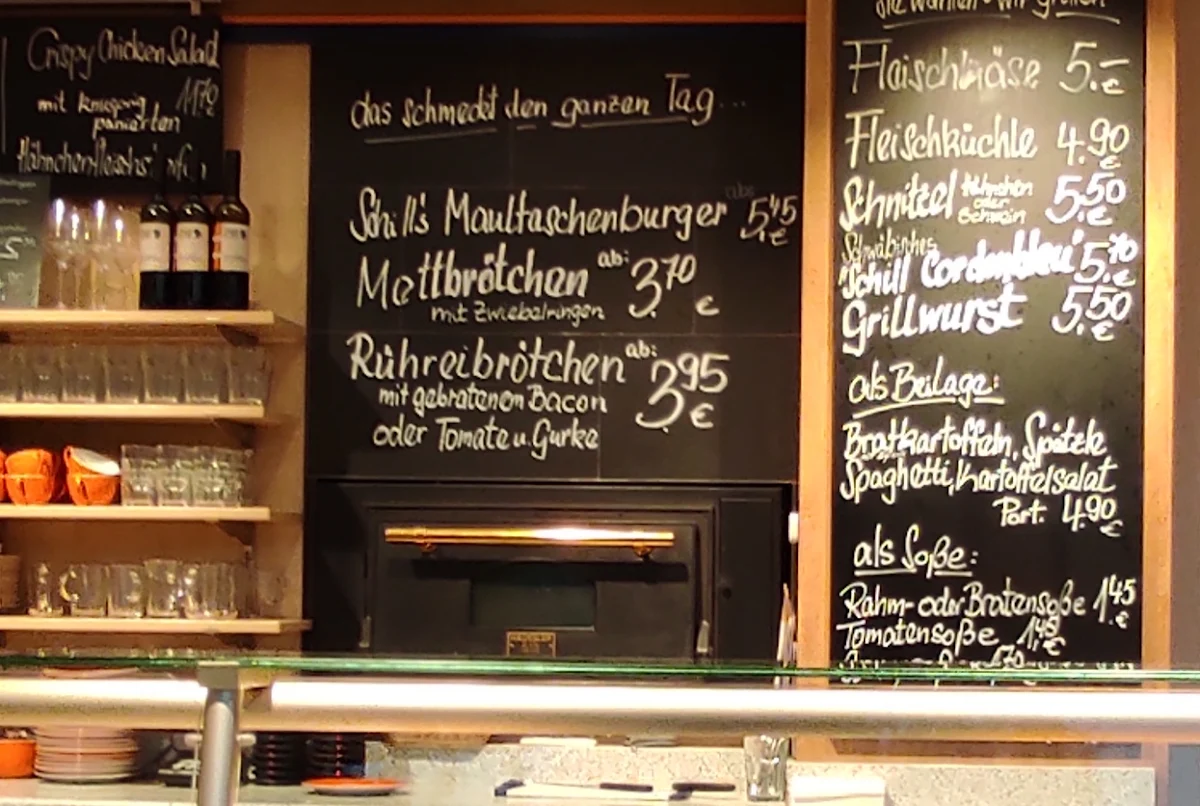 Crispy Chicken Salad
mit knusprig 11,70
panierten
das schmeckt den ganzen Tag...
Schill's Maultaschenburger 5,45 €
Mettbrötchen ab: 3,70 €
mit Zwiebelringen
Rühreibrötchen ab: 3,95 €
mit gebratenem Bacon
oder Tomate u. Gurke
Sie wählen - wir grillen
Fleischkäse 5.- €
Fleischküchle 4.90 €
Schnitzel Hähnchen oder Schwein 5,50 €
Schwäbisches
"Schill Cordonbleu" 5,70 €
Grillwurst 5,50 €
als Beilage:
Bratkartoffeln, Spätzle
Spaghetti, Kartoffelsalat
Port. 4.90 €
als Soße:
Rahm- oder Bratensoße 1,45 €
Tomatensoße 1,45 €